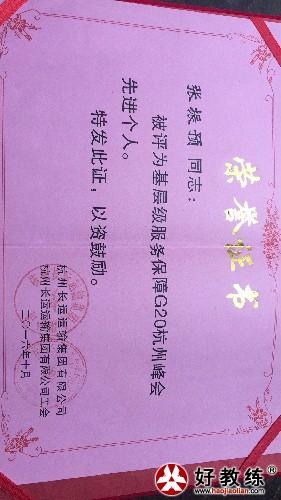 荣誉证书
张振预 同志：
被评为基层级服务保障G20杭州峰会
先进个人。
特发此证，以资鼓励。
杭州长运运输集团有限公司
杭州长运运输集团有限公司工会
二〇一六年十月
好教练®
www.haojiaolian.com